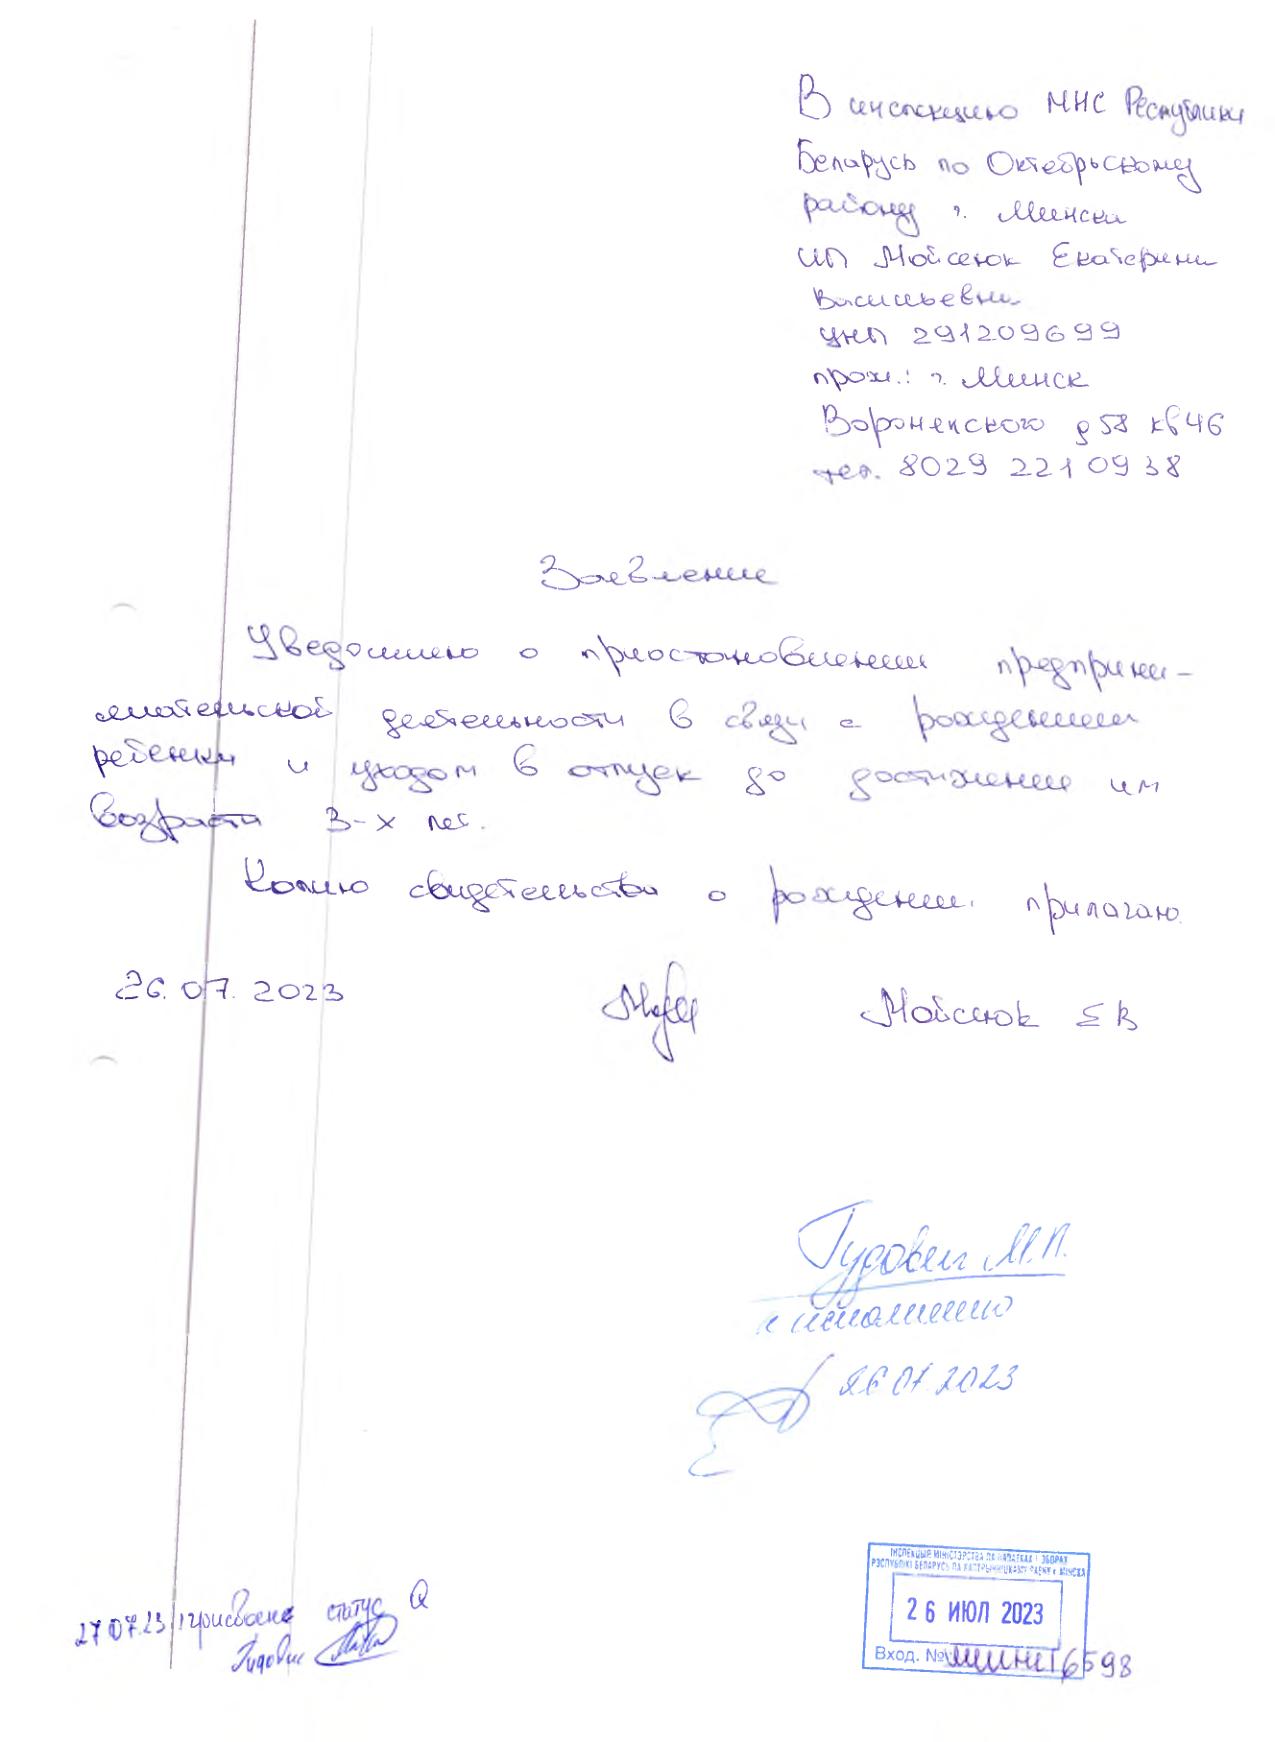 В инспекцию МНС Республики
Беларусь по Октябрьскому
району г. Минска
ИП Мойсеюк Екатерины
Васильевны
УНП 291209699
прож.: г. Минск
Воронянского д 58 кв 46
тел. 8029 221 09 38
Заявление
Уведомляю о приостановлении предприни-
мательской деятельности в связи с рождением
ребенка и уходом в отпуск до достижения им
возраста 3-х лет.
Копию свидетельства о рождении прилагаю.
26.07.2023 Мойсеюк Е В
М.П.
к исполнению
26.07.2023
ІНСПЕКЦЫЯ МІНІСТЭРСТВА ПА ПАДАТКАХ І ЗБОРАХ
РЭСПУБЛІКІ БЕЛАРУСЬ ПА КАСТРЫЧНІЦКАМУ РАЁНУ г. МІНСКА
26 ИЮЛ 2023
Вход. № 6598
27.07.23 присвоен статус Q